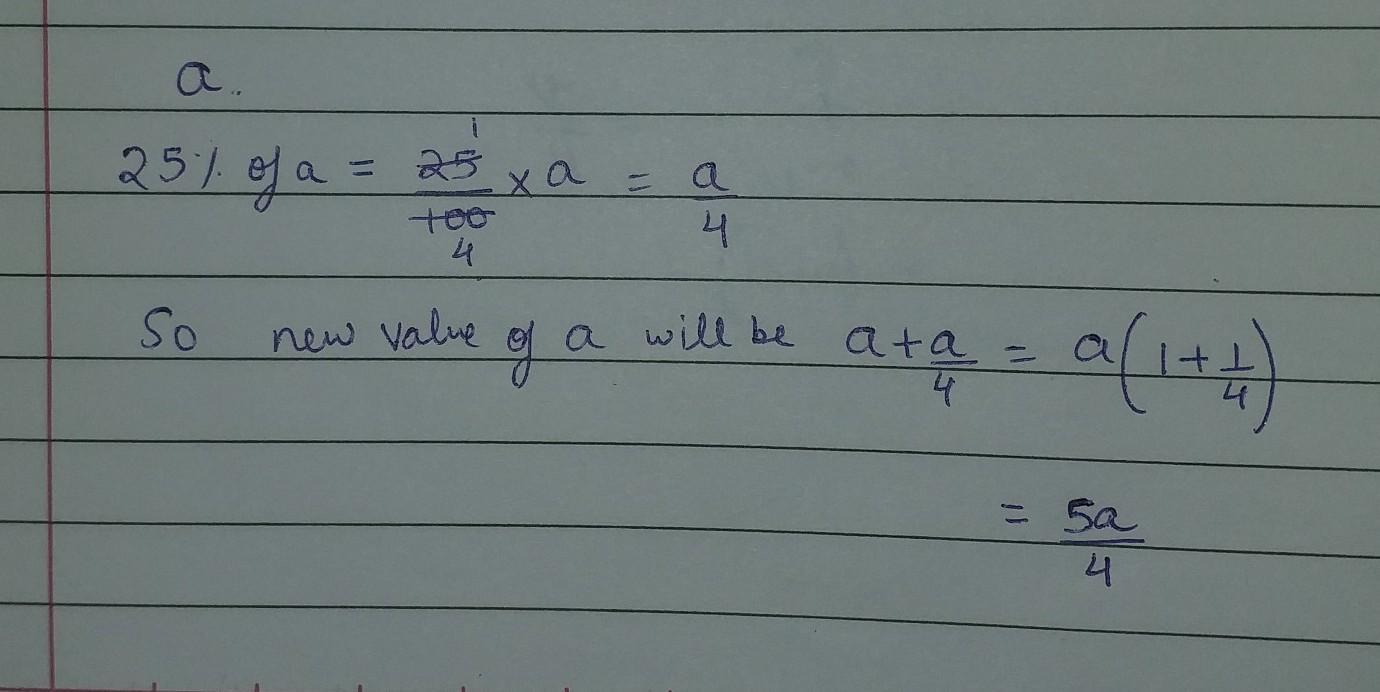 a..
25% of a = 25/100 × a = a/4
1
4
So new value of a will be a + a/4 = a(1 + 1/4)
= 5a/4